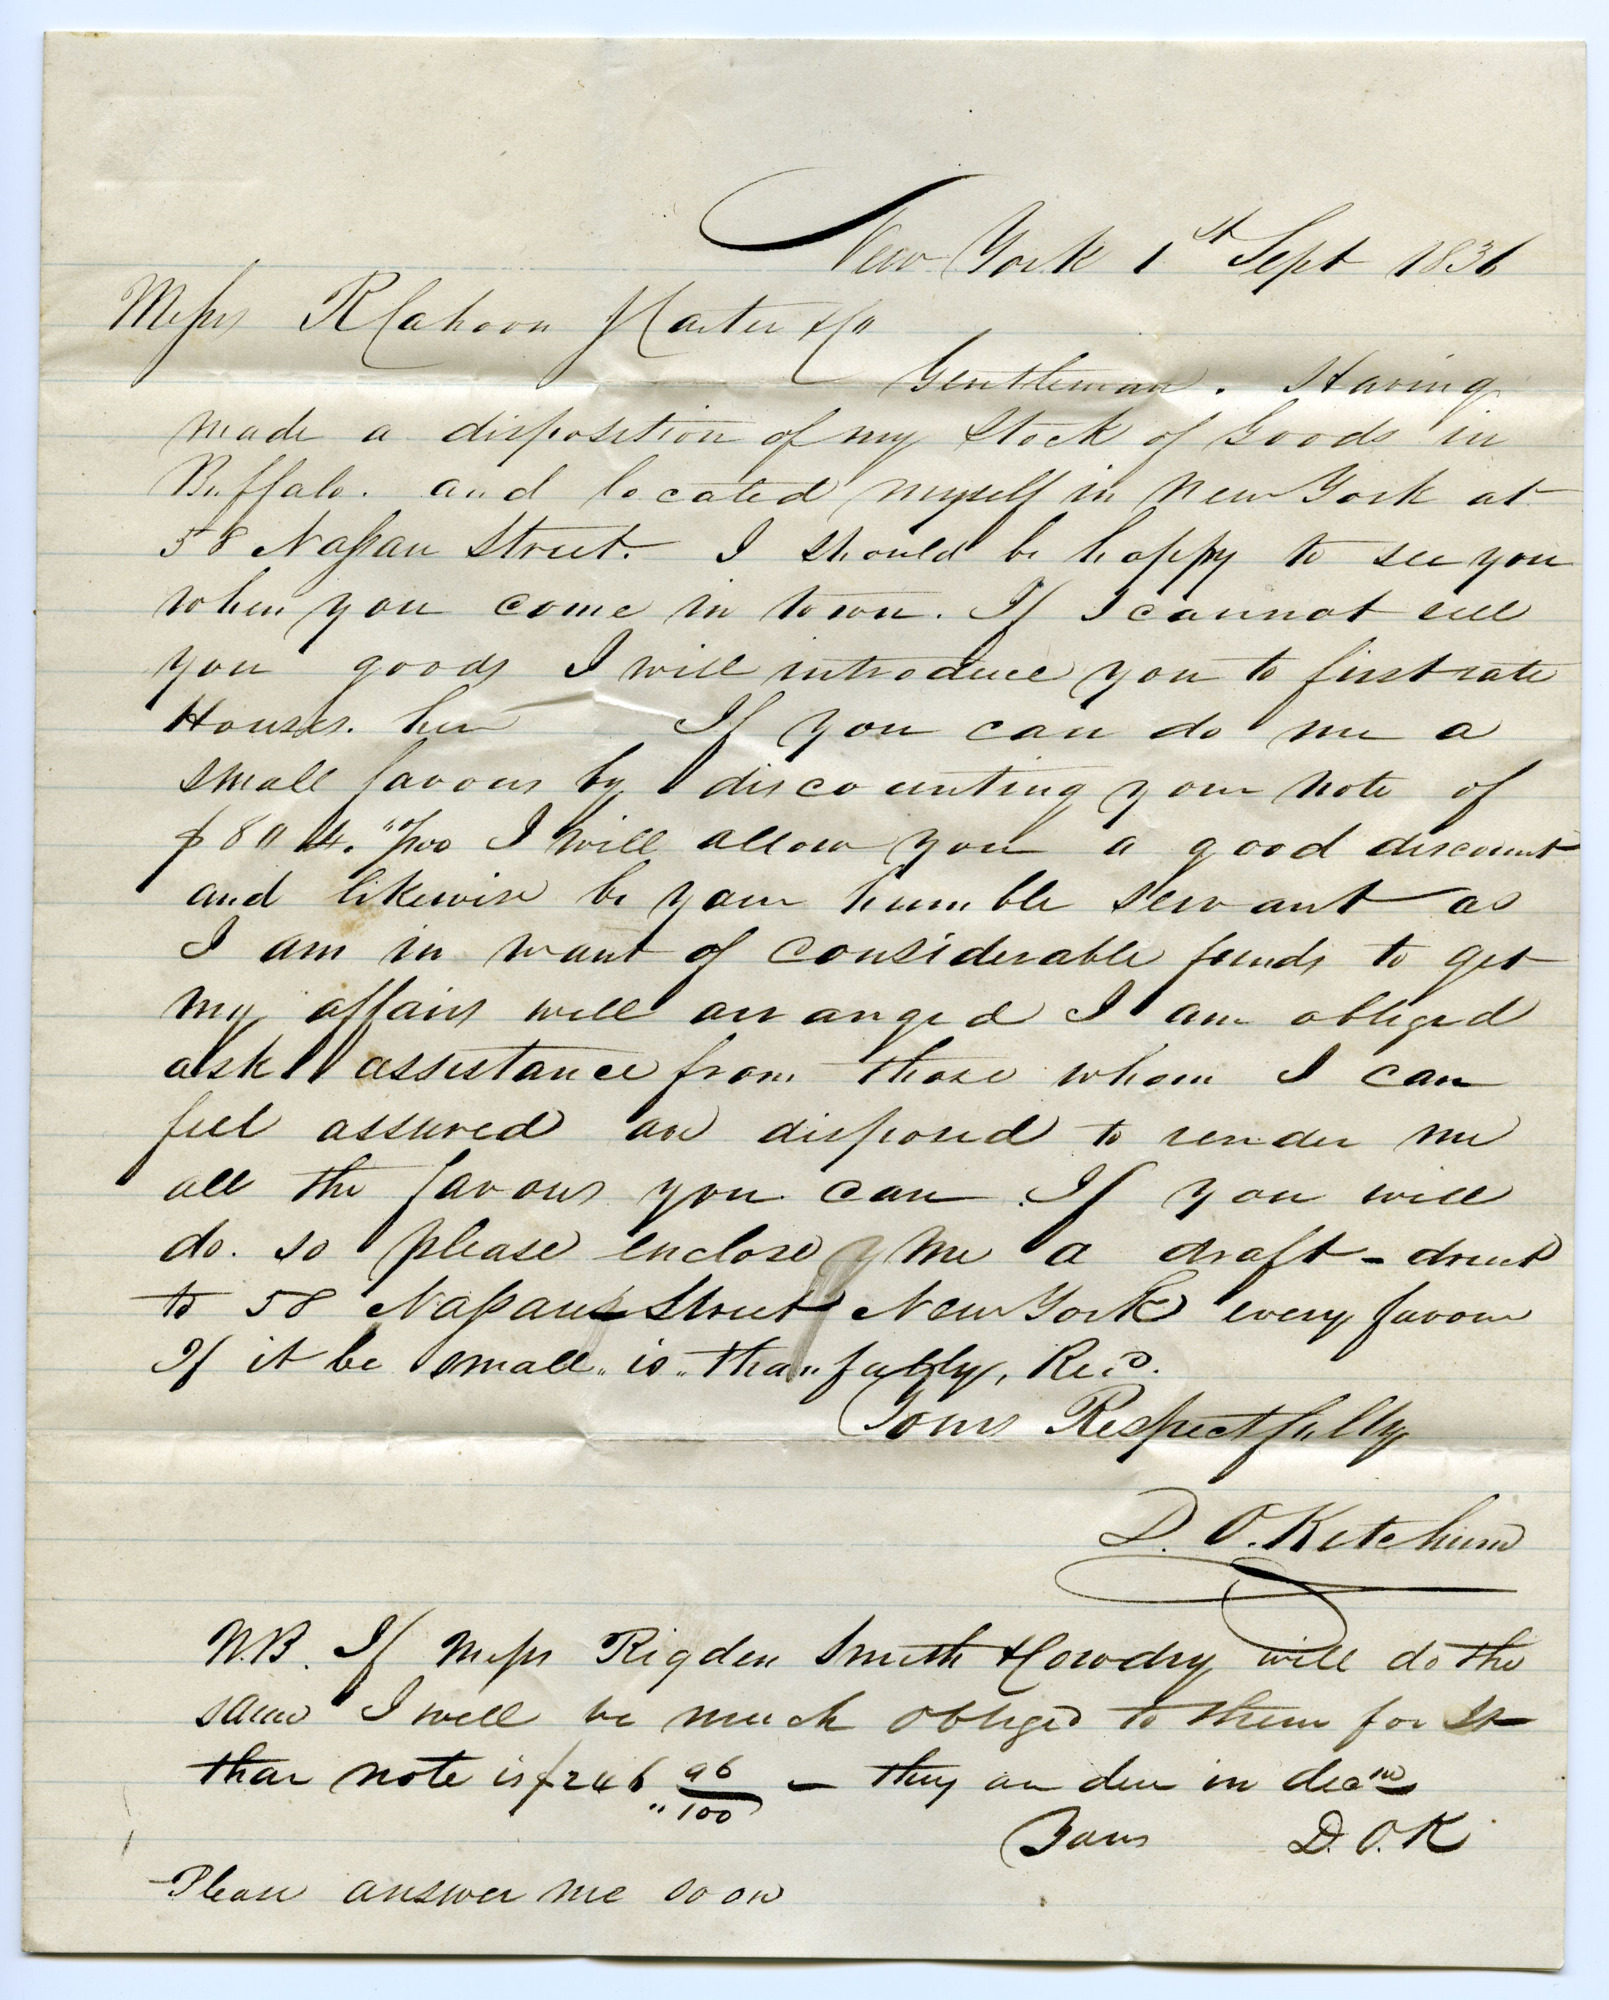 New York 1st Sept 1836
Messrs R Cahoon J Carter & Co
Gentleman. Having
made a disposition of my Stock of Goods in
Buffalo. and located myself in New York at
58 Nassau Street. I should be happy to see you
when you come in town. If I cannot sell
you goods I will introduce you to first rate
Houses. here If you can do me a
small favour by discounting your note of
$804. I will allow you a good discount
and likewise be your humble servant as
I am in want of considerable funds to get
my affairs well arranged I am obliged
ask assistance from those whom I can
feel assured are disposed to render me
all the favours you can. If you will
do. so please enclose me a draft - direct
to 58 Nassau Street New York every favour
If it be small,, is,, thankfully, Recd.
Yours Respectfully
D. O. Ketchum
N.B. If Messrs Rigden Smith & Cowdry will do the
same I will be much obliged to them for it
thar note is $246 96/100 — they are due in decm
Yours D. O. K
Please answer me soon